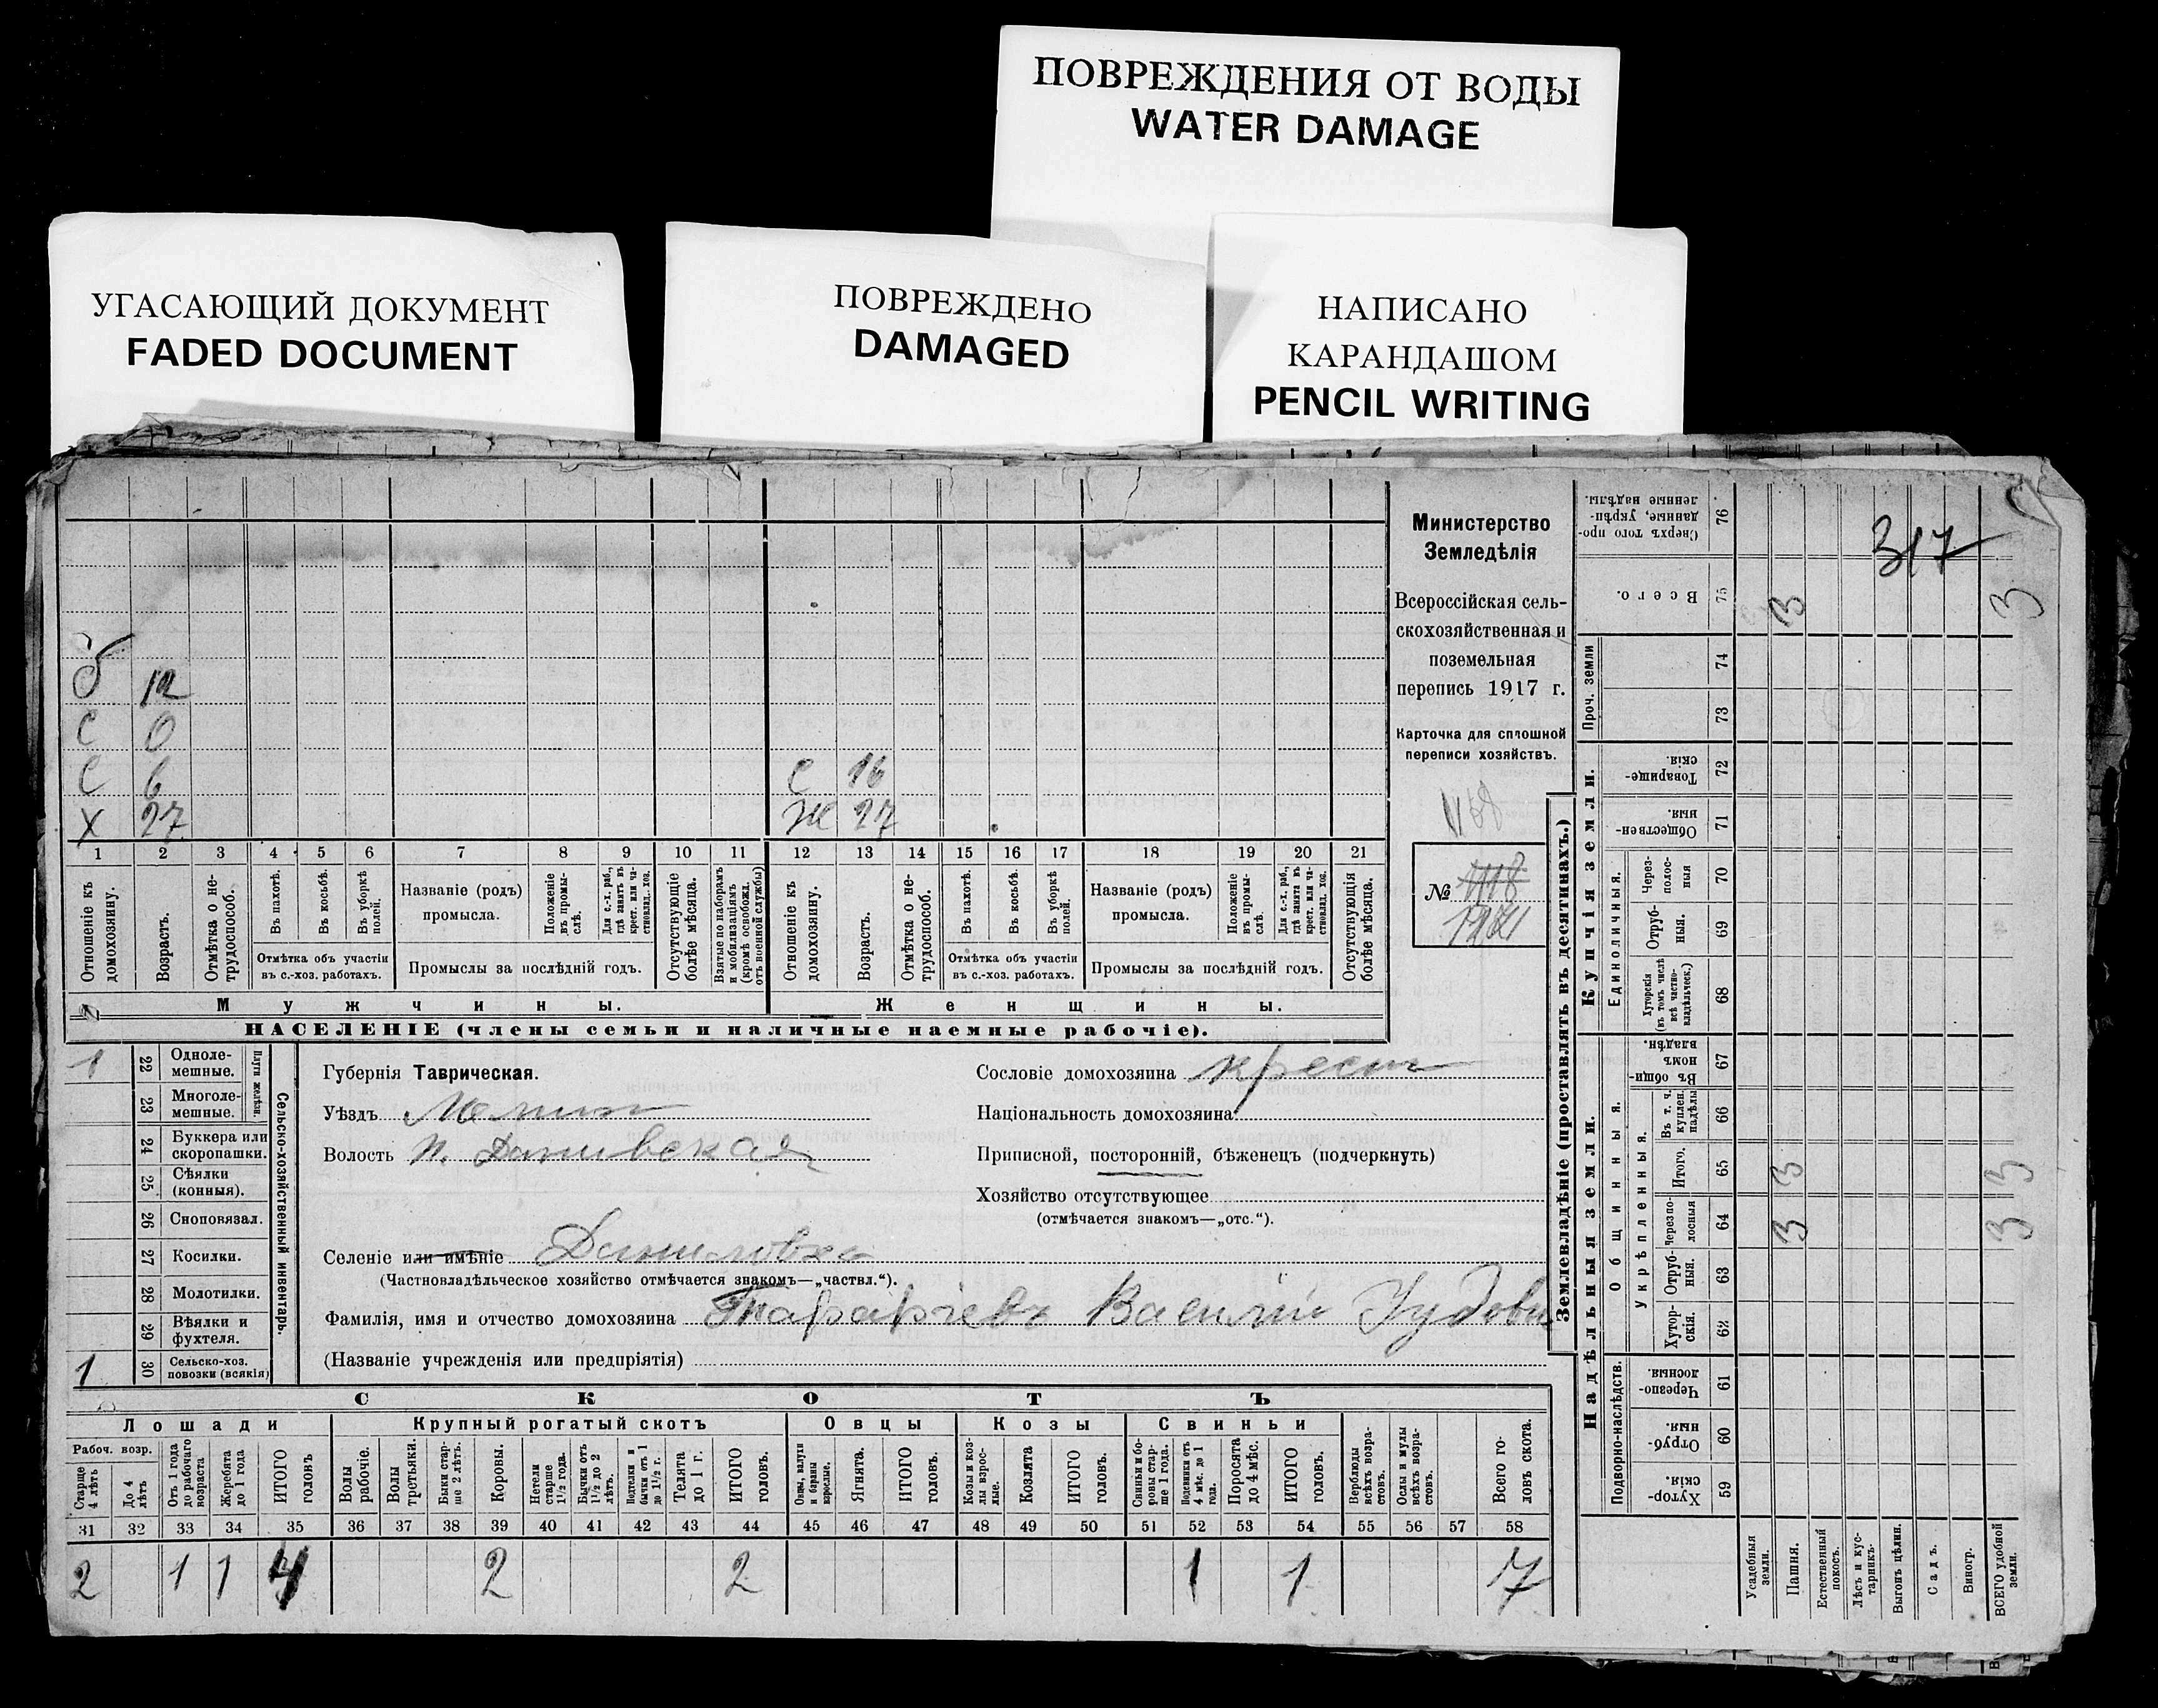 ПОВРЕЖДЕНИЯ ОТ ВОДЫ
WATER DAMAGE
УГАСАЮЩИЙ ДОКУМЕНТ
FADED DOCUMENT
ПОВРЕЖДЕНО
DAMAGED
НАПИСАНО
КАРАНДАШОМ
PENCIL WRITING
317
Министерство
Земледѣлія
Всероссійская сель-
скохозяйственная и
поземельная
перепись 1917 г.
Карточка для сплошной
переписи хозяйствъ.
1168
№ 1118
12
С 0
С 6 С 16
Х 27 Ж 27
1 2 3 4 5 6 7 8 9 10 11 12 13 14 15 16 17 18 19 20 21
Отношеніе къ домохозяину.
Возрастъ.
Отмѣтка о не-трудоспособ.
Въ пахотѣ.
Въ косьбѣ.
Въ уборкѣ полей.
Отмѣтка объ участіи
въ с.-хоз. работахъ.
Названіе (родъ)
промысла.
Положеніе въ промы-слѣ.
Для с.-х. раб., гдѣ занятъ въ крест. или ча-стновлад. хоз.
Промыслы за послѣдній годъ.
Отсутствующіе болѣе мѣсяца.
Взятые по наборамъ и мобилизаціямъ (кромѣ освобожд. отъ военной службы)
Отношеніе къ домохозяину.
Возрастъ.
Отмѣтка о не-трудоспособ.
Въ пахотѣ.
Въ косьбѣ.
Въ уборкѣ полей.
Отмѣтка объ участіи
въ с.-хоз. работахъ.
Названіе (родъ)
промысла.
Положеніе въ промы-слѣ.
Для с.-х. раб., гдѣ занята въ крест. или ча-стновлад. хоз.
Промыслы за послѣдній годъ.
Отсутствующія болѣе мѣсяца.
Мужчины. Женщины.
НАСЕЛЕНІЕ (члены семьи и наличные наемные рабочіе).
Сельско-хозяйственный инвентарь.
Плуги желѣзн.
1 22 Одноле-мешные.
23 Многоле-мешные.
24 Буккера или скоропашки.
25 Сѣялки (конныя).
26 Сноповязал.
27 Косилки.
28 Молотилки.
29 Вѣялки и фухтеля.
1 30 Сельско-хоз. повозки (всякія)
Губернія Таврическая.
Уѣздъ Мелит
Волость
Селеніе или имѣніе Даниловка
(Частновладѣльческое хозяйство отмѣчается знакомъ—„частвл.“).
Фамилія, имя и отчество домохозяина Василій
(Названіе учрежденія или предпріятія)
Сословіе домохозяина крест
Національность домохозяина
Приписной, посторонній, бѣженецъ (подчеркнуть)
Хозяйство отсутствующее
(отмѣчается знакомъ—„отс.“).
СКОТЪ
Лошади Крупный рогатый скотъ Овцы Козы Свиньи
Рабоч. возр.
Старше 4 лѣтъ
До 4 лѣтъ
Отъ 1 года до рабочаго возраста
Жеребята до 1 года
ИТОГО головъ
Волы рабочіе.
Волы третьяки.
Быки стар-ше 2 лѣтъ.
Коровы.
Нетели старше 1½ года.
Бычки отъ 1½ до 2 лѣтъ.
Подтелки и бычки отъ 1 до 1½ г.
Телята до 1 г.
ИТОГО головъ.
Овцы, валухи и бараны взрослые.
Ягнята.
ИТОГО головъ.
Козы и коз-лы взрос-лые.
Козлята
ИТОГО головъ.
Свиньи и бо-ровы стар-ше 1 года.
Подсвинки отъ 4 мѣс. до 1 года.
Поросята до 4 мѣс.
ИТОГО головъ.
Верблюды всѣхъ возра-стовъ.
Ослы и мулы всѣхъ возра-стовъ.
Всего го-ловъ скота.
31 32 33 34 35 36 37 38 39 40 41 42 43 44 45 46 47 48 49 50 51 52 53 54 55 56 57 58
2 1 1 4 2 2 1 1 7
Землевладѣніе (проставлять въ десятинахъ.)
Надѣльныя земли.
Купчія земли.
Проч. земли
Общинныя.
Укрѣпленныя.
Единоличныя.
Подворно-наслѣдств.
Сверхъ того про-данные, укрѣп-ленные надѣлы. 76
Всего. 75 3 3
74
73
Товарище-скія. 72
Обществен-ныя. 71
Через-полос-ныя 70
Отруб-ныя. 69
Хуторскія (въ томъ числѣ всѣ частно-владѣльческ.) 68
Въ общин-номъ владѣн. 67
Въ т. ч. куплен. надѣлы 66
Итого. 65 3 3
Черезпо-лосныя 64 3 3
Отруб-ныя. 63
Хутор-скія. 62
Черезпо-лосныя. 61
Отруб-ныя. 60
Хутор-скія. 59
Усадебныя земли.
Пашня.
Естественный покосъ.
Лѣсъ и кус-тарникъ.
Выгонъ цѣлин.
Садъ.
Виногр.
ВСЕГО удобной земли.